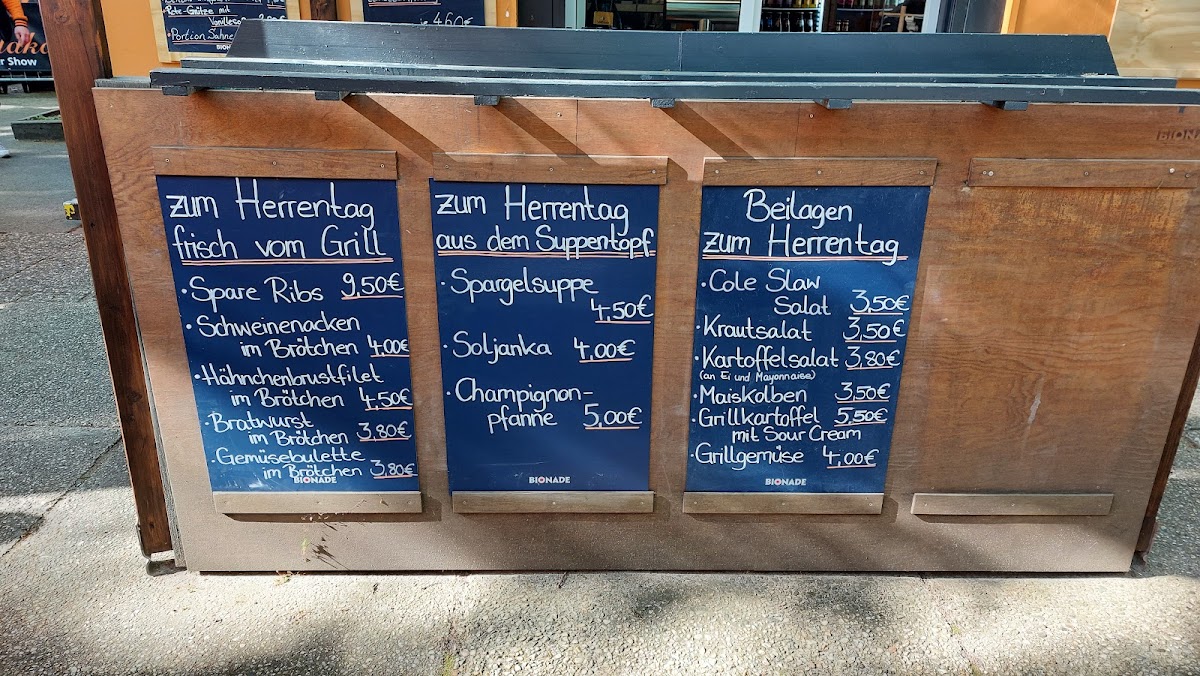 r Show
Rote-Grütze mit
Portion Sahne
BIONADE
4,60€
zum Herrentag
frisch vom Grill
· Spare Ribs 9,50€
· Schweinenacken
im Brötchen 4,00€
· Hähnchenbrustfilet
im Brötchen 4,50€
· Bratwurst
im Brötchen 3,80€
· Gemüsebulette
im Brötchen 3,80€
BIONADE
zum Herrentag
aus dem Suppentopf
· Spargelsuppe
4,50€
· Soljanka 4,00€
· Champignon-
pfanne 5,00€
BIONADE
Beilagen
zum Herrentag
· Cole Slaw
Salat 3,50€
· Krautsalat 3,50€
· Kartoffelsalat 3,80€
(an Ei und Mayonnaise)
· Maiskolben 3,50€
· Grillkartoffel 5,50€
mit Sour Cream
· Grillgemüse 4,00€
BIONADE